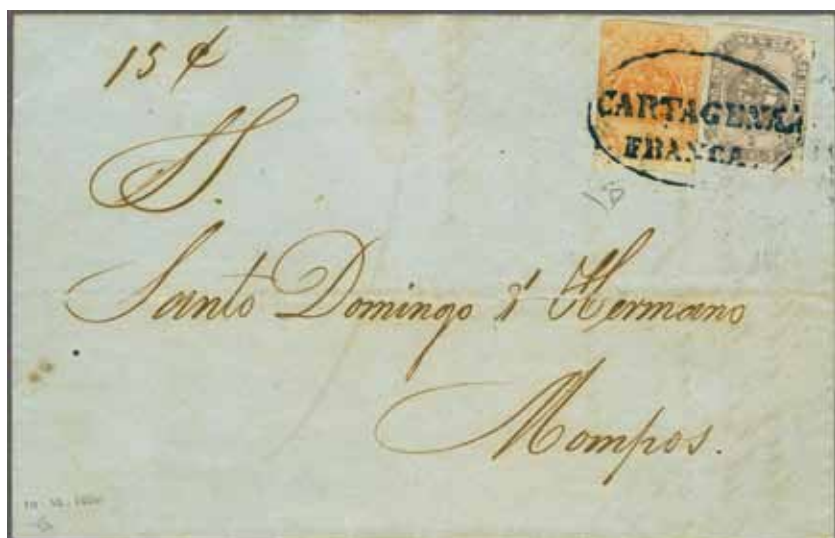 15 ¢
CARTAGENA
FRANCA
S.S.
Santo Domingo é Hermano
Mompos.